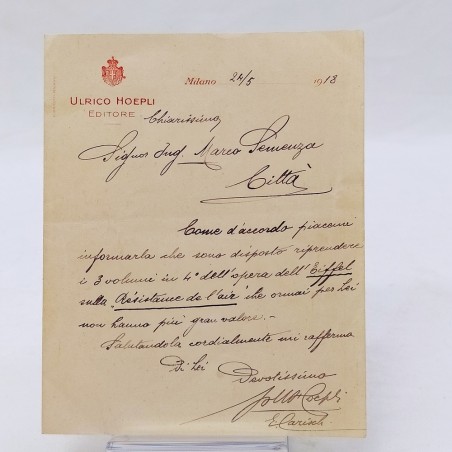 ULRICO HOEPLI
EDITORE
Milano 24/5 1918
Chiarissimo
Signor Ing. Marco Semenza
Città
Come d'accordo piacemi
informarla che sono disposto riprendere
i 3 volumi in 4° dell'opera dell'Eiffel
sulla "Résistence de l'air" che ormai per Lei
non hanno più gran valore. -
Salutandola cordialmente mi raffermo
Di Lei Devotissimo
Hoepli
E. Carisch